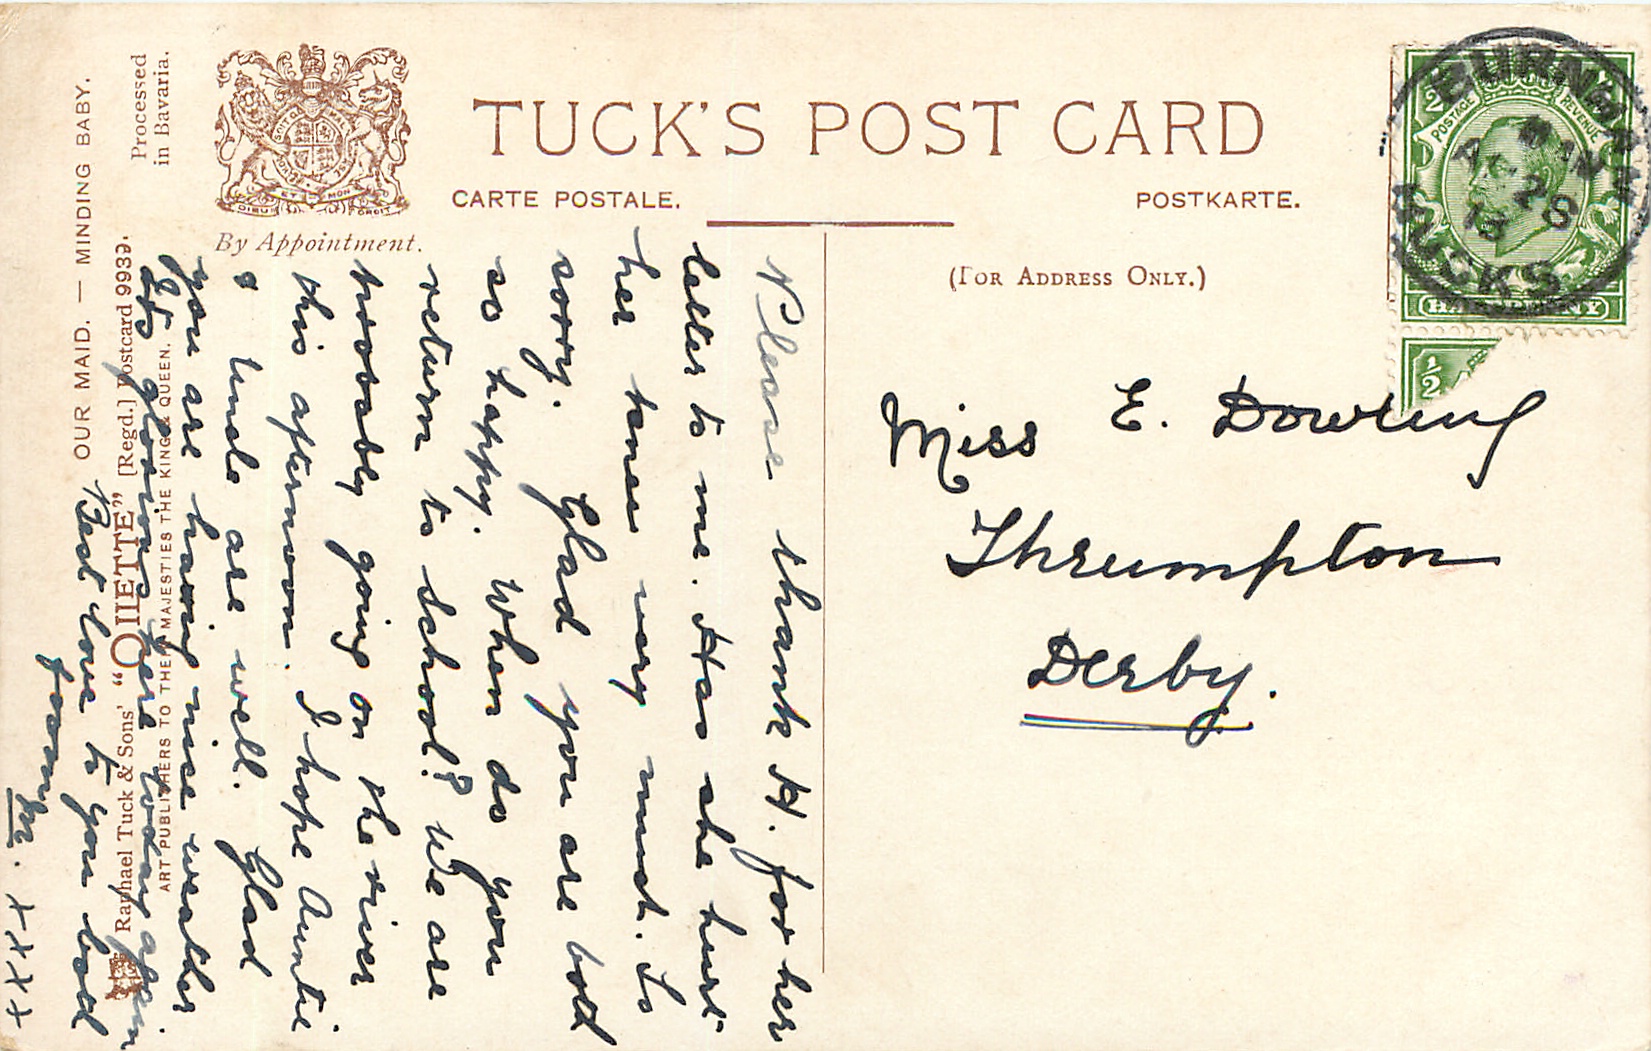 TUCK'S POST CARD
CARTE POSTALE.
POSTKARTE.
By Appointment.
(FOR ADDRESS ONLY.)
DIEU ET MON
POSTAGE
REVENUE
HALFPENNY
BURNHAM
AP 28
13
BUCKS
1/2
Miss E. Dowling
Thrumpton
Derby.
Please thank H. for her
letter to me. Has she hurt
her knee very much. Is
sorry. Glad you are both
so happy. When do you
return to School? We are
probably going on the river
this afternoon. I hope Auntie
& Uncle are well. Glad
you are having nice weather
glorious here today again
Best love to you both
from
M. xxxx
Processed
in Bavaria.
OUR MAID. — MINDING BABY.
Raphael Tuck & Sons' "OILETTE" [Regd.] Postcard 9939.
ART PUBLISHERS TO THEIR MAJESTIES THE KING & QUEEN.